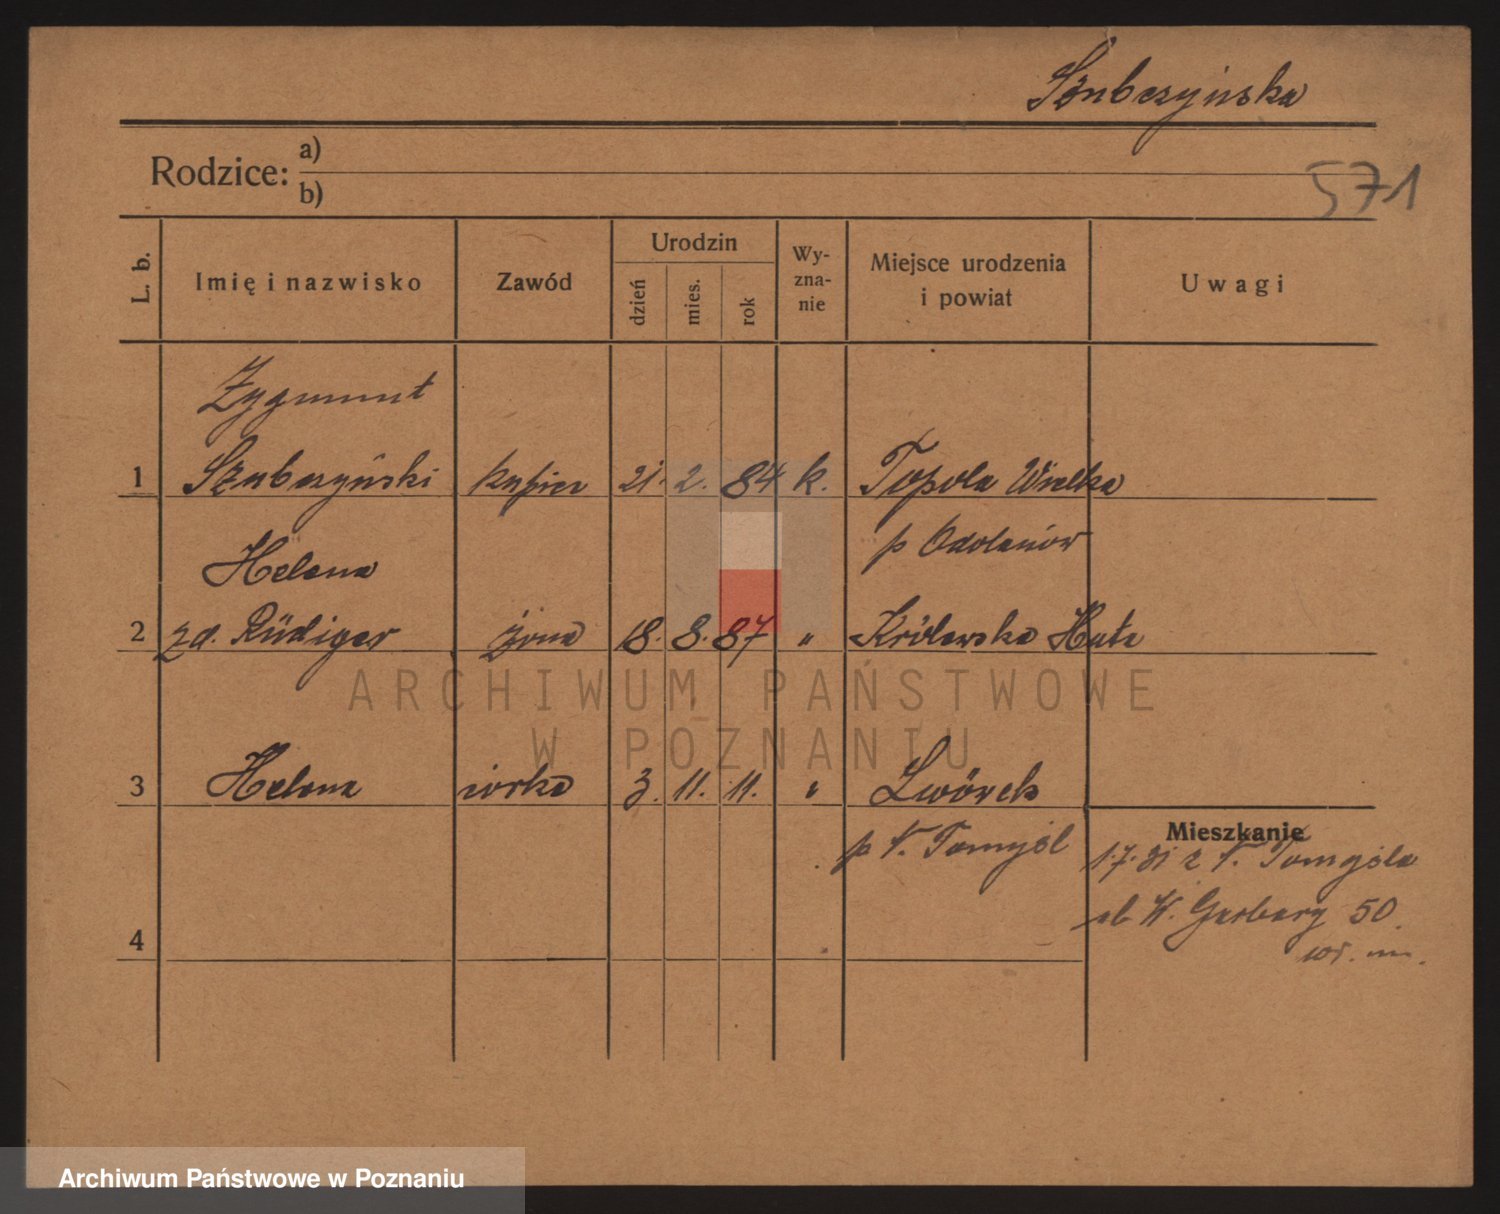 Szubczyńska
Rodzice: a)
b)
571
L. b.
Imię i nazwisko
Zawód
Urodzin
dzień
mies.
rok
Wy-
zna-
nie
Miejsce urodzenia
i powiat
Uwagi
Zygmunt
1 Szubczyński kupiec 21. 2. 84 k. Topola Wielka
p Odolanów
Helena
2 zd. Rüdiger żona 18. 8. 87 " Królewska Huta
3 Helena córka 3. 11. 11. " Lwówek
p N. Tomyśl
Mieszkanie
1.7.31 z N. Tomyśla
W. Garbary 50
4
ARCHIWUM PAŃSTWOWE
W POZNANIU
Archiwum Państwowe w Poznaniu